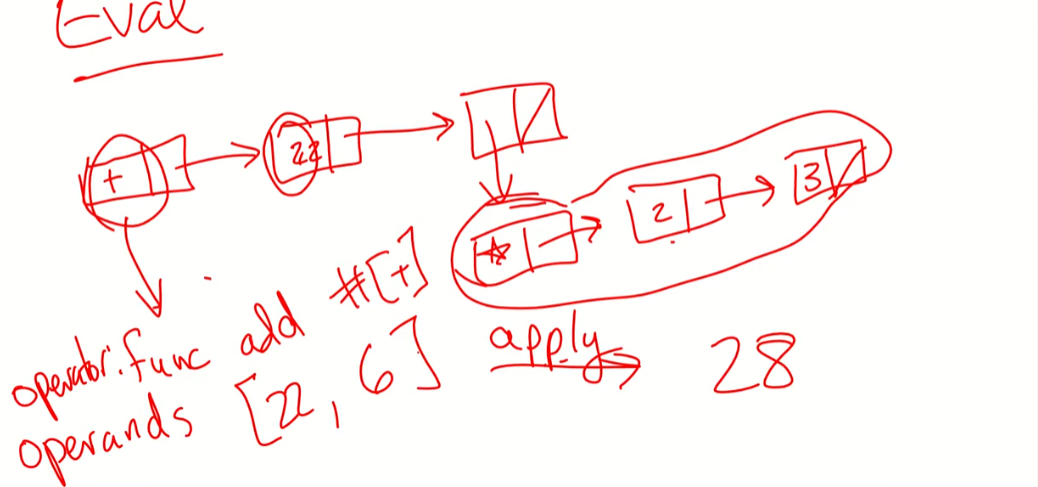 Eval
+ 22
* 2 3
operator: func add #[+]
operands [22, 6] apply 28